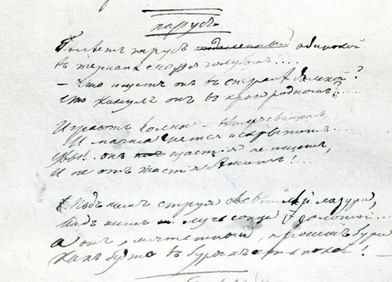 парусъ.
Бѣлѣетъ парусъ одинокой
въ туманѣ моря голубомъ....
— Что ищетъ онъ въ странѣ далекой?
Что кинулъ онъ въ краю родномъ?....
Играютъ волны — вѣтеръ свищетъ,
И мачта гнется и скрыпитъ....
Увы! онъ счастія не ищетъ,
И не отъ счастія бѣжитъ!...
Подъ нимъ струя свѣтлѣй лазури,
надъ нимъ лучь солнца золотой....
а онъ, мятежный, проситъ бури,
какъ будто въ буряхъ есть покой! —